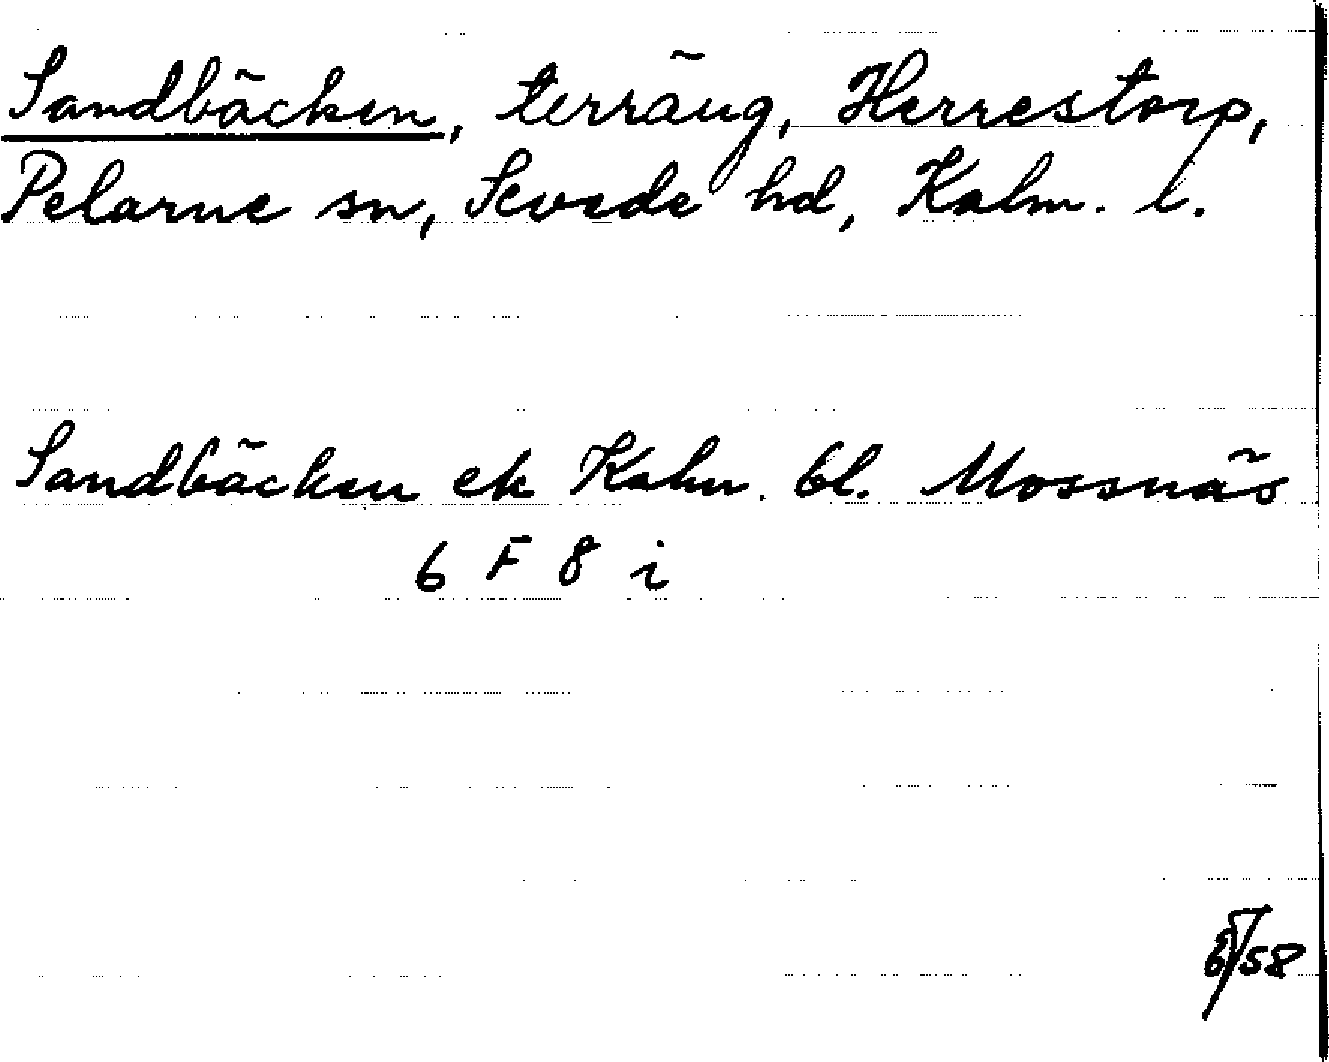 Sandbäcken, terräng, Herrestorp,
Pelarne sn, Sevede hd, Kalm. l.
Sandbäcken ek Kalm. bl. Mossnäs
6 F 8 i